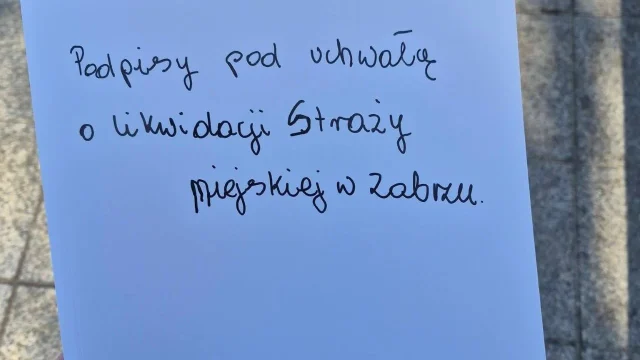 Podpisy pod uchwałą
o likwidacji Straży
miejskiej w Zabrzu.